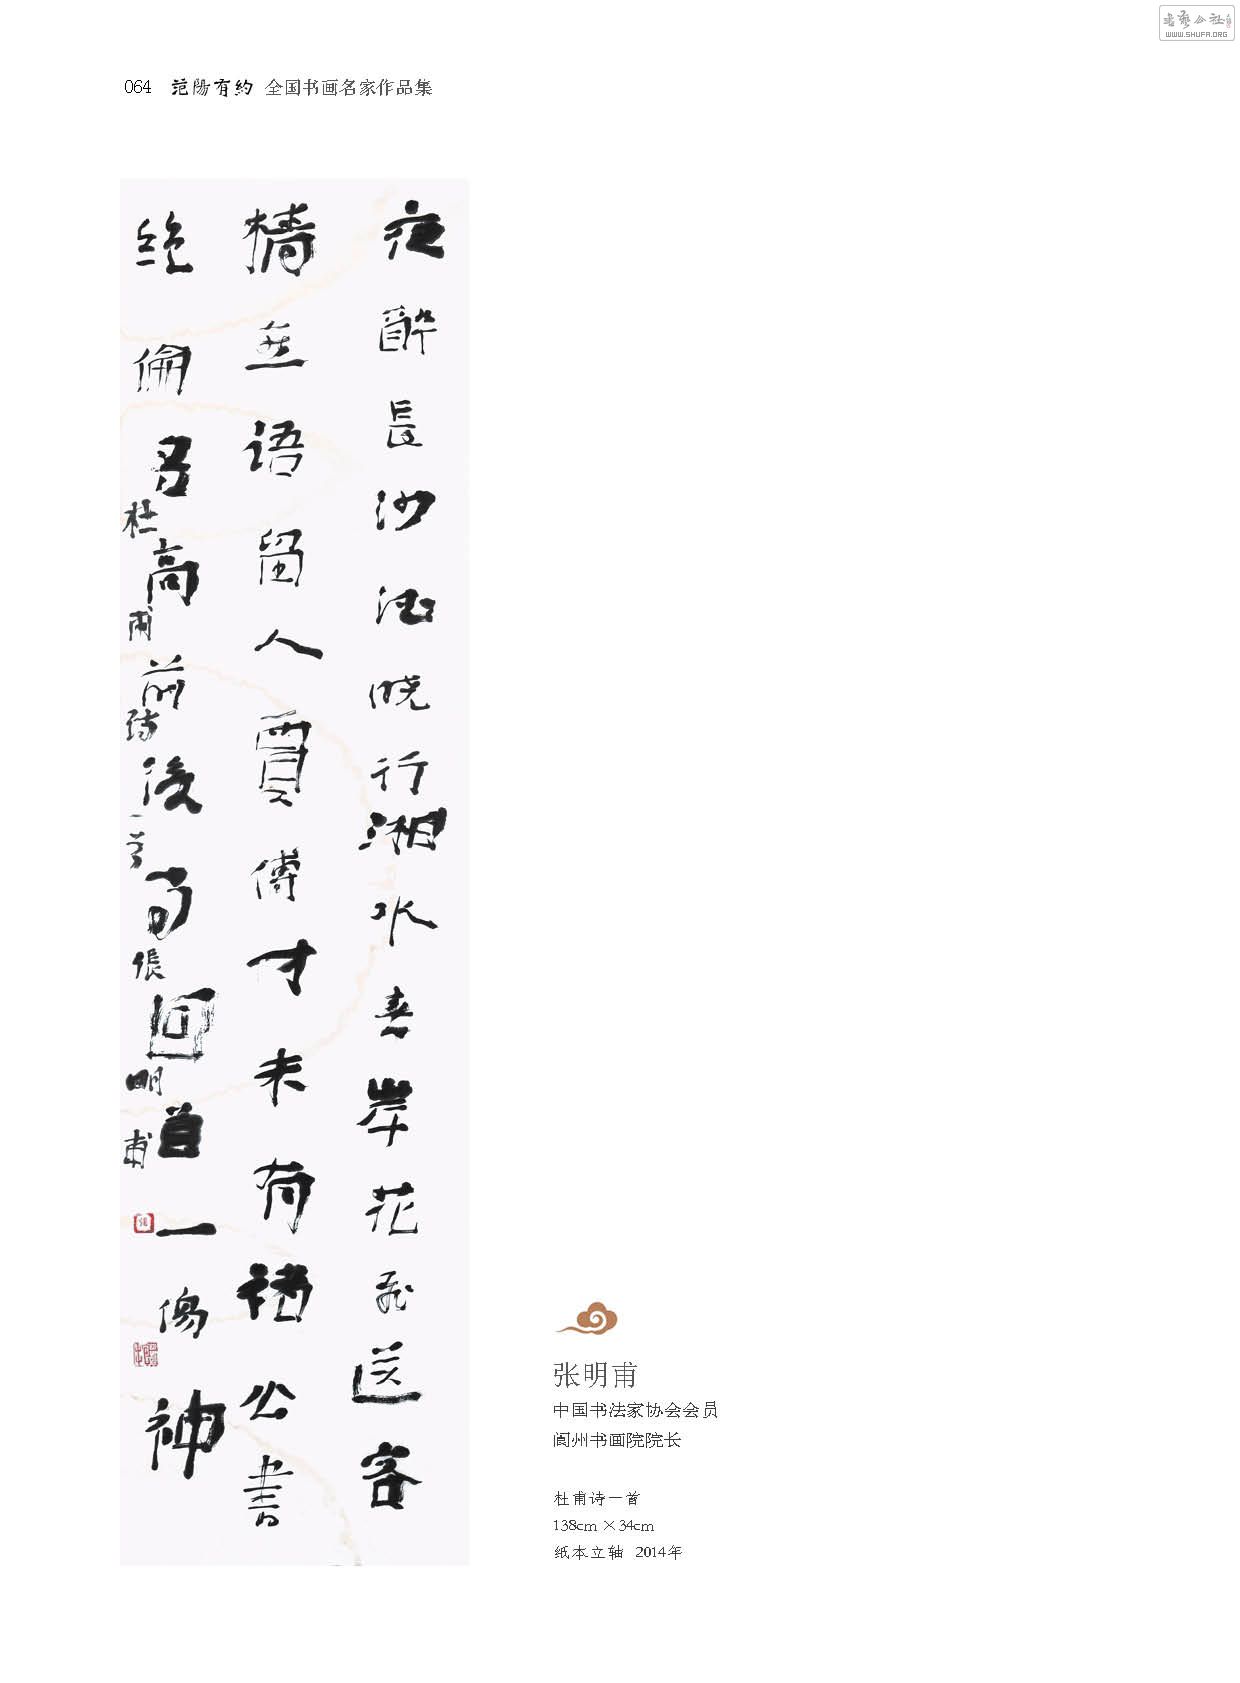 書藝公社
WWW.SHUFA.ORG
064 范陽有約 全国书画名家作品集
夜醉長沙酒晓行湘水春岸花飛送客
檣燕语留人賈傅才未有褚公書
絕倫名高前後事回首一傷神
杜甫詩一首 張明甫
张明甫
中国书法家协会会员
阆州书画院院长
杜甫诗一首
138cm×34cm
纸本立轴 2014年